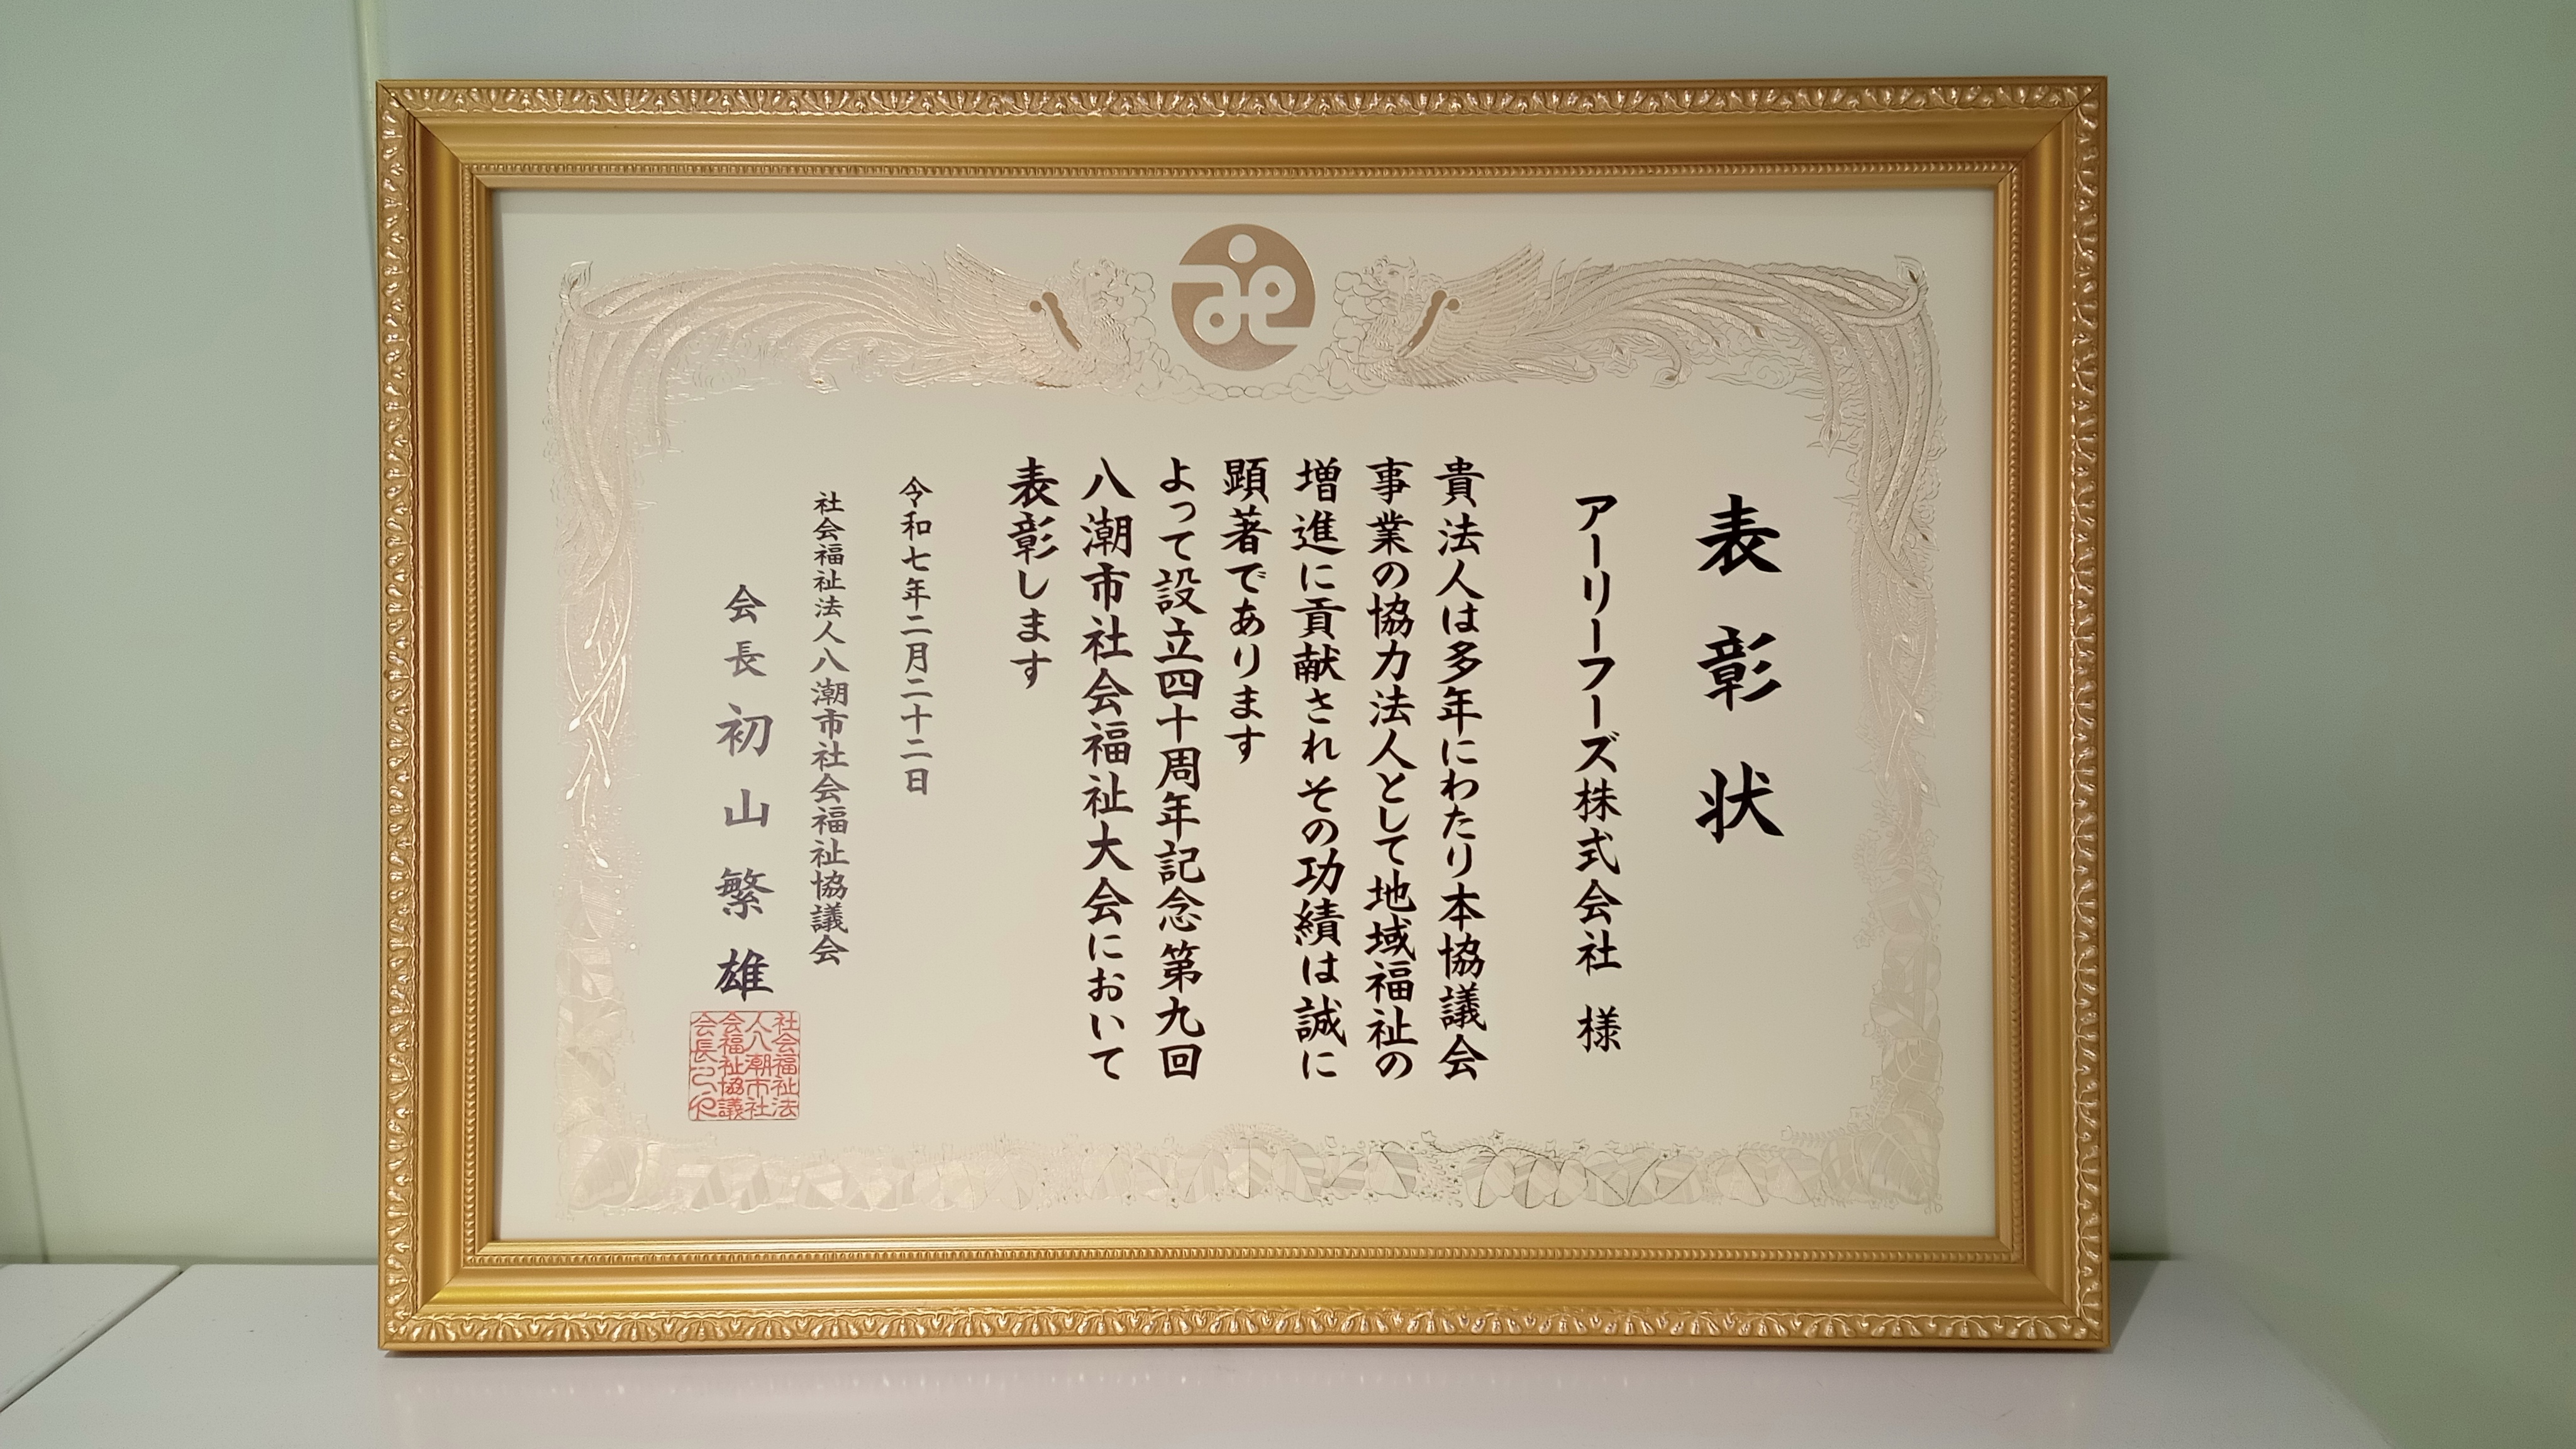 表彰状
アーリーフーズ株式会社 様
貴法人は多年にわたり本協議会
事業の協力法人として地域福祉の
増進に貢献され その功績は誠に
顕著であります
よって設立四十周年記念第九回
八潮市社会福祉大会において
表彰します
令和七年二月二十二日
社会福祉法人八潮市社会福祉協議会
会長 初山繁雄
社会福祉法
人八潮市社
会福祉協議
会長之印